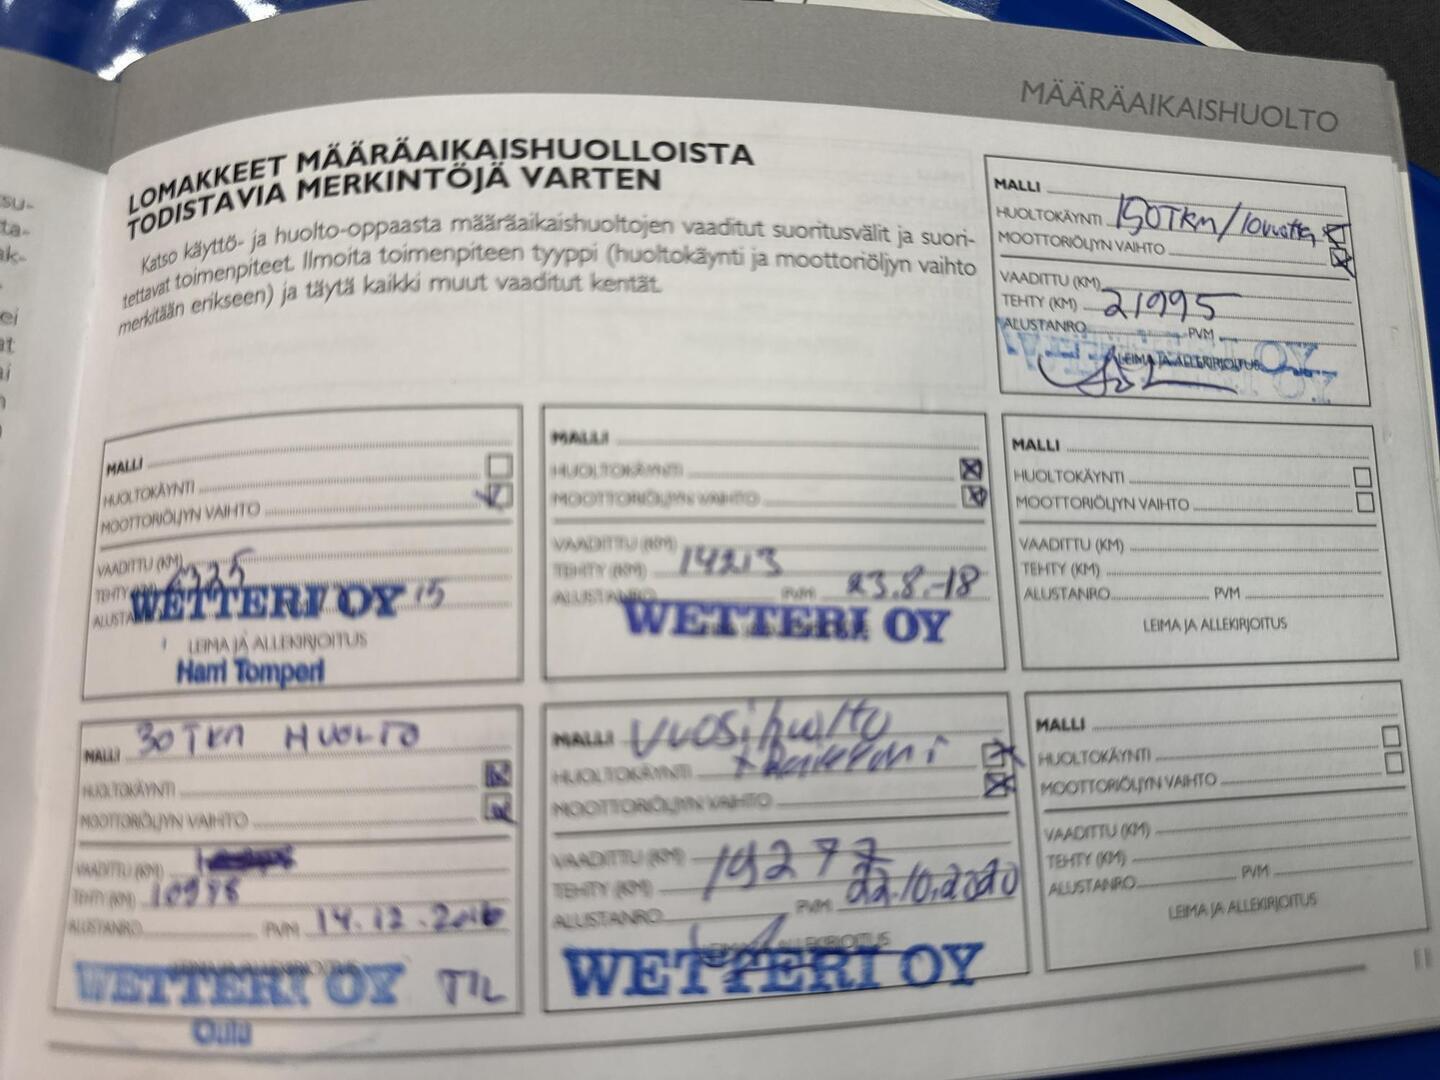 su-
ta-
ak-
ei
at
ai
MÄÄRÄAIKAISHUOLTO
LOMAKKEET MÄÄRÄAIKAISHUOLLOISTA
TODISTAVIA MERKINTÖJÄ VARTEN
Katso käyttö- ja huolto-oppaasta määräaikaishuoltojen vaaditut suoritusvälit ja suori-
tettavat toimenpiteet. Ilmoita toimenpiteen tyyppi (huoltokäynti ja moottoriöljyn vaihto
merkitään erikseen) ja täytä kaikki muut vaaditut kentät.
MALLI
HUOLTOKÄYNTI 150TKM/10vuotta
MOOTTORIÖLJYN VAIHTO
VAADITTU (KM)
TEHTY (KM) 21995
ALUSTANRO PVM
LEIMA JA ALLEKIRJOITUS
WETTERI OY
MALLI
HUOLTOKÄYNTI
MOOTTORIÖLJYN VAIHTO
VAADITTU (KM)
TEHTY (KM)
15
WETTERI OY
LEIMA JA ALLEKIRJOITUS
Harri Tomperi
MALLI
HUOLTOKÄYNTI
MOOTTORIÖLJYN VAIHTO
VAADITTU (KM)
TEHTY (KM) 14213
ALUSTANRO PVM 23.8.-18
WETTERI OY
MALLI
HUOLTOKÄYNTI
MOOTTORIÖLJYN VAIHTO
VAADITTU (KM)
TEHTY (KM)
ALUSTANRO PVM
LEIMA JA ALLEKIRJOITUS
MALLI 30TKM HUOLTO
HUOLTOKÄYNTI
MOOTTORIÖLJYN VAIHTO
VAADITTU (KM)
TEHTY (KM) 10988
ALUSTANRO PVM 14.12.2016
LEIMA JA ALLEKIRJOITUS
WETTERI OY
Oulu
MALLI Vuosihuolto
HUOLTOKÄYNTI
MOOTTORIÖLJYN VAIHTO
VAADITTU (KM) 19277
TEHTY (KM)
ALUSTANRO PVM 22.10.2020
LEIMA JA ALLEKIRJOITUS
WETTERI OY
MALLI
HUOLTOKÄYNTI
MOOTTORIÖLJYN VAIHTO
VAADITTU (KM)
TEHTY (KM)
ALUSTANRO PVM
LEIMA JA ALLEKIRJOITUS
11